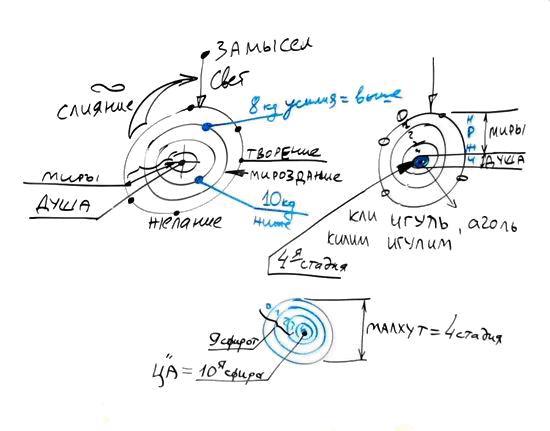 ЗАМЫСЕЛ
СВЕТ
∞
СЛИЯНИЕ
8 kg усилия = выше
ТВОРЕНИЕ
МИРОЗДАНИЕ
МИРЫ
ДУША
10 kg
ниже
ЖЕЛАНИЕ
0
1
2
3
4
МИРЫ
ДУША
КЛИ ИГУЛЬ, АГОЛЬ
КИЛИМ ИГУЛИМ
4я стадия
0
9 сфирот
Ц"А = 10я сфира
МАЛХУТ = 4 стадия